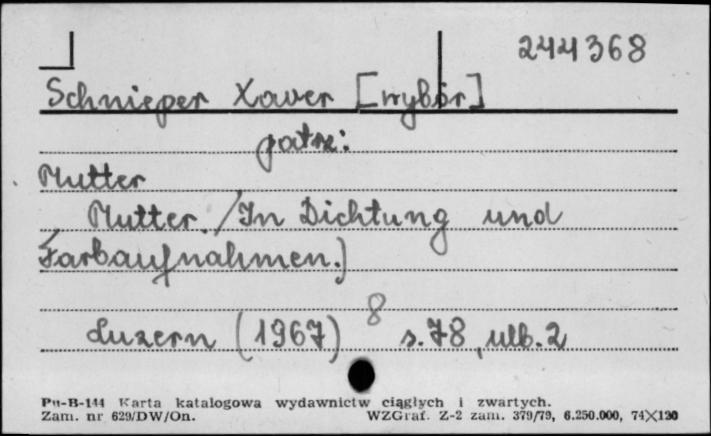 244368
Schnieper Xaver [wybór]
patrz:
Mutter
Mutter. /In Dichtung und
Farbaufnahmen.)
Luzern (1967) 8 s. 78, ulb. 2
Pu-B-144 Karta katalogowa wydawnictw ciągłych i zwartych.
Zam. nr 629/DW/On. WZGraf. Z-2 zam. 379/79, 6.250.000, 74×120